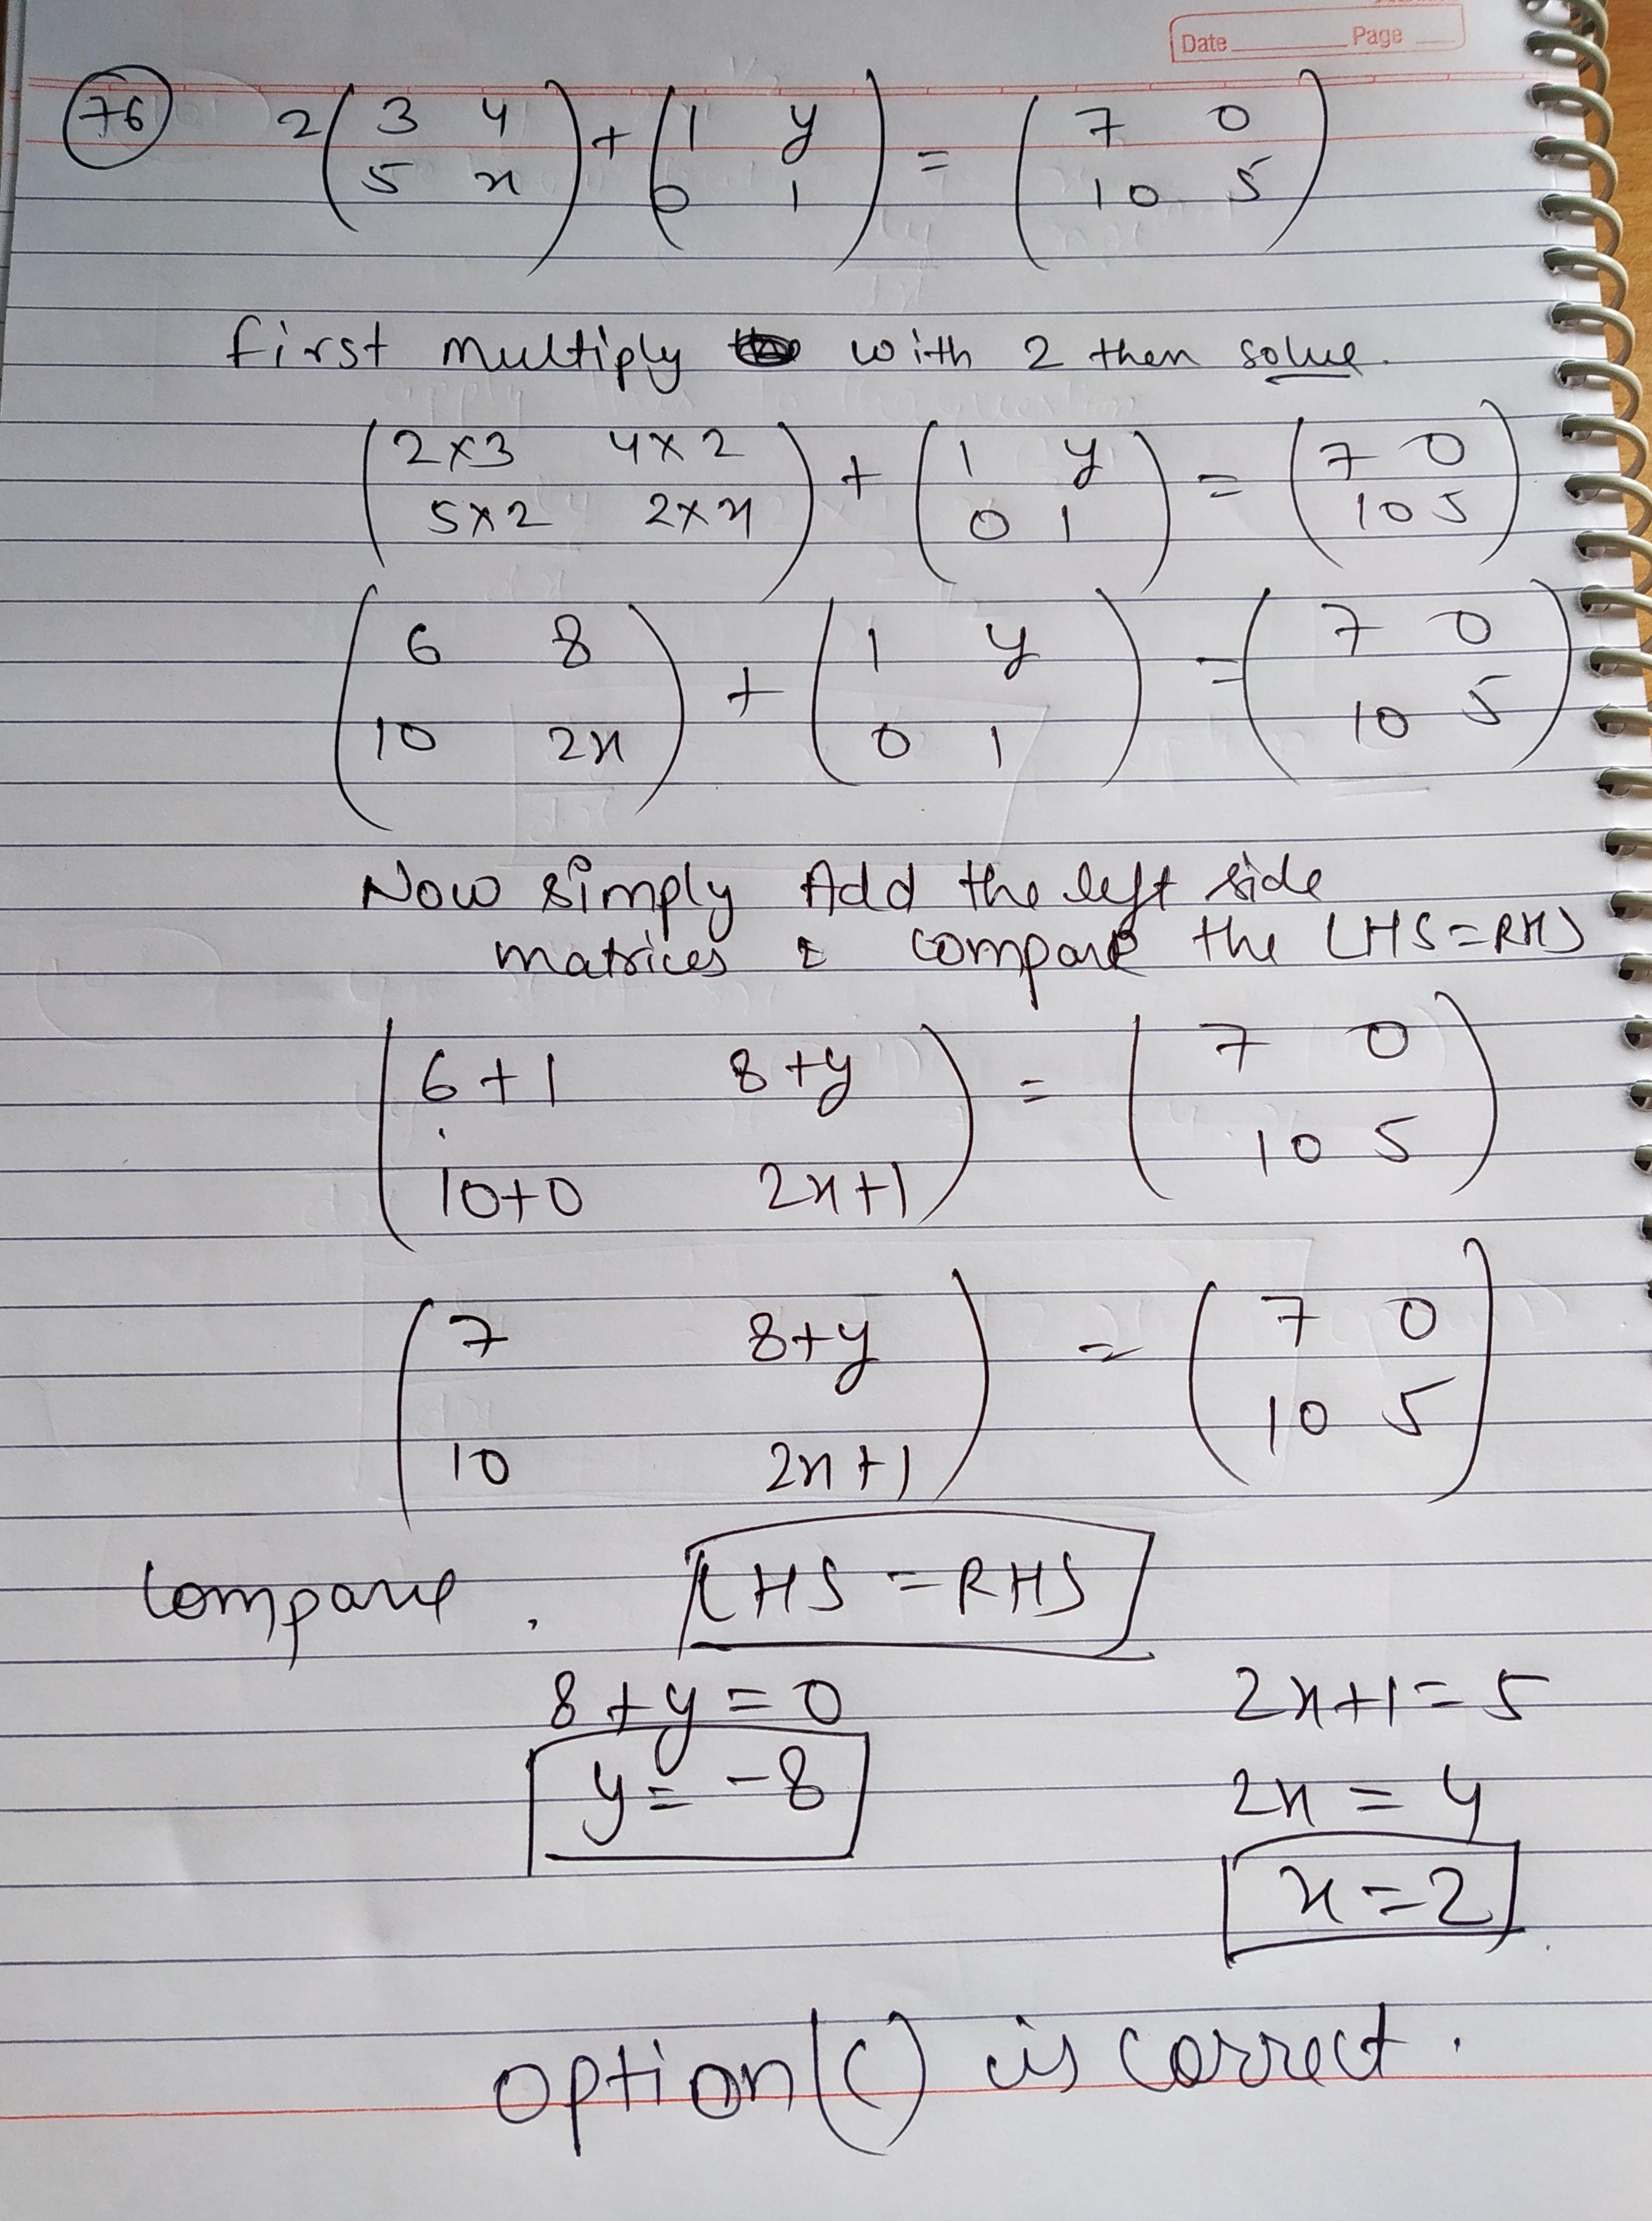 Date Page
76 2 ( 3 4 ) + ( 1 y ) = ( 7 0 )
5 x 0 1 10 5
first multiply with 2 then solve.
( 2×3 4×2 ) + ( 1 y ) = ( 7 0 )
5×2 2×x 0 1 10 5
( 6 8 ) + ( 1 y ) = ( 7 0 )
10 2x 0 1 10 5
Now simply Add the left side
matrices & compare the LHS=RHS
( 6+1 8+y ) = ( 7 0 )
10+0 2x+1 10 5
( 7 8+y ) = ( 7 0 )
10 2x+1 10 5
Compare. LHS = RHS
8+y=0 2x+1=5
y=-8 2x=4
x=2
option (C) is correct.